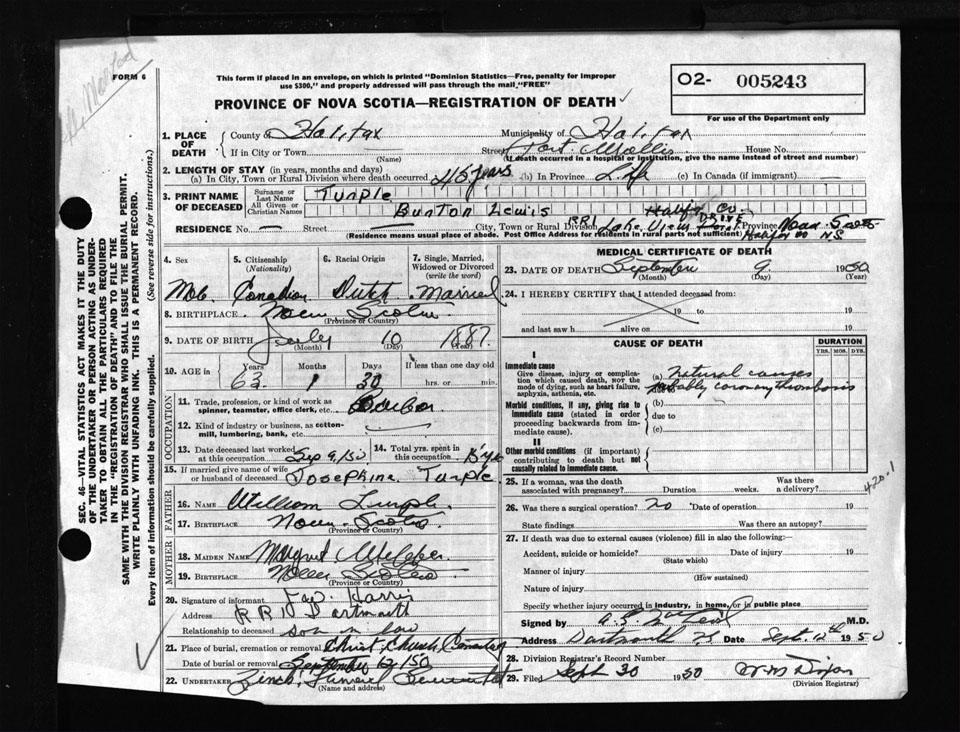 FORM 6
This form if placed in an envelope, on which is printed "Dominion Statistics—Free, penalty for improper
use $300," and properly addressed will pass through the mail "FREE"
PROVINCE OF NOVA SCOTIA—REGISTRATION OF DEATH
02- 005243
For use of the Department only
1. PLACE OF DEATH County of Halifax Municipality of Halifax
If in City or Town Street Port Wallis House No.
(Name) (If death occurred in a hospital or institution, give the name instead of street and number)
2. LENGTH OF STAY (in years, months and days)
(a) In City, Town or Rural Division where death occurred 45 years (b) In Province Life (c) In Canada (if immigrant) —
3. PRINT NAME OF DECEASED Surname or Last Name Turple
All Given or Christian Names Burton Lewis
Halifax Co.
RESIDENCE No. — Street — City, Town or Rural Division RR1 Lake View Drive Province Nova Scotia
(Residence means usual place of abode. Post Office Address for residents in rural parts not sufficient) Halifax Co NS
4. Sex 5. Citizenship (Nationality) 6. Racial Origin 7. Single, Married, Widowed or Divorced (write the word)
Canadian Dutch Married
8. BIRTHPLACE Nova Scotia
(Province or Country)
9. DATE OF BIRTH July 10 1887
(Month) (Day) (Year)
10. AGE in Years Months Days If less than one day old
63 1 30 hrs. or min.
OCCUPATION
11. Trade, profession, or kind of work as spinner, teamster, office clerk, etc.
12. Kind of industry or business, as cotton-mill, lumbering, bank, etc.
13. Date deceased last worked at this occupation Sep 9/50 14. Total yrs. spent in this occupation
15. If married give name of wife or husband of deceased Josephine Turple
FATHER
16. NAME William Turple
17. BIRTHPLACE Nova Scotia
(Province or Country)
MOTHER
18. MAIDEN NAME Margaret
19. BIRTHPLACE Nova Scotia
(Province or Country)
20. Signature of informant Harris
Address RR1 Dartmouth
Relationship to deceased son in law
21. Place of burial, cremation or removal Christ Church Cemetery
Date of burial or removal September 12/50
22. UNDERTAKER Funeral
(Name and address)
MEDICAL CERTIFICATE OF DEATH
23. DATE OF DEATH September 9 1950
(Month) (Day) (Year)
24. I HEREBY CERTIFY that I attended deceased from:
19 to 19
and last saw h alive on 19
CAUSE OF DEATH
DURATION
YRS. MOS. DYS.
I
Immediate cause
Give disease, injury or complication which caused death, NOT the mode of dying, such as heart failure, asphyxia, asthenia, etc.
(a) Natural causes
probably coronary thrombosis
Morbid conditions, if any, giving rise to immediate cause (stated in order proceeding backwards from immediate cause).
(b)
due to
(c)
II
Other morbid conditions (if important) contributing to death but not causally related to immediate cause.
420.1
25. If a woman, was the death associated with pregnancy? Duration weeks. Was there a delivery?
26. Was there a surgical operation? No Date of operation 19
State findings Was there an autopsy?
27. If death was due to external causes (violence) fill in also the following:
Accident, suicide or homicide? Date of injury 19
(State which)
Manner of injury
(How sustained)
Nature of injury
Specify whether injury occurred in industry, in home, or in public place
Signed by M.D.
Address Dartmouth NS Date Sept. 12th 1950
28. Division Registrar's Record Number
29. Filed Sept 30 1950 Wm Dixon
(Division Registrar)
SEC. 46—VITAL STATISTICS ACT MAKES IT THE DUTY
OF THE UNDERTAKER OR PERSON ACTING AS UNDER-
TAKER TO OBTAIN ALL THE PARTICULARS REQUIRED
IN THE "REGISTRATION OF DEATH" AND TO FILE THE
SAME WITH THE DIVISION REGISTRAR WHO SHALL ISSUE THE BURIAL PERMIT.
WRITE PLAINLY WITH UNFADING INK. THIS IS A PERMANENT RECORD.
Every item of information should be carefully supplied. (See reverse side for instructions.)